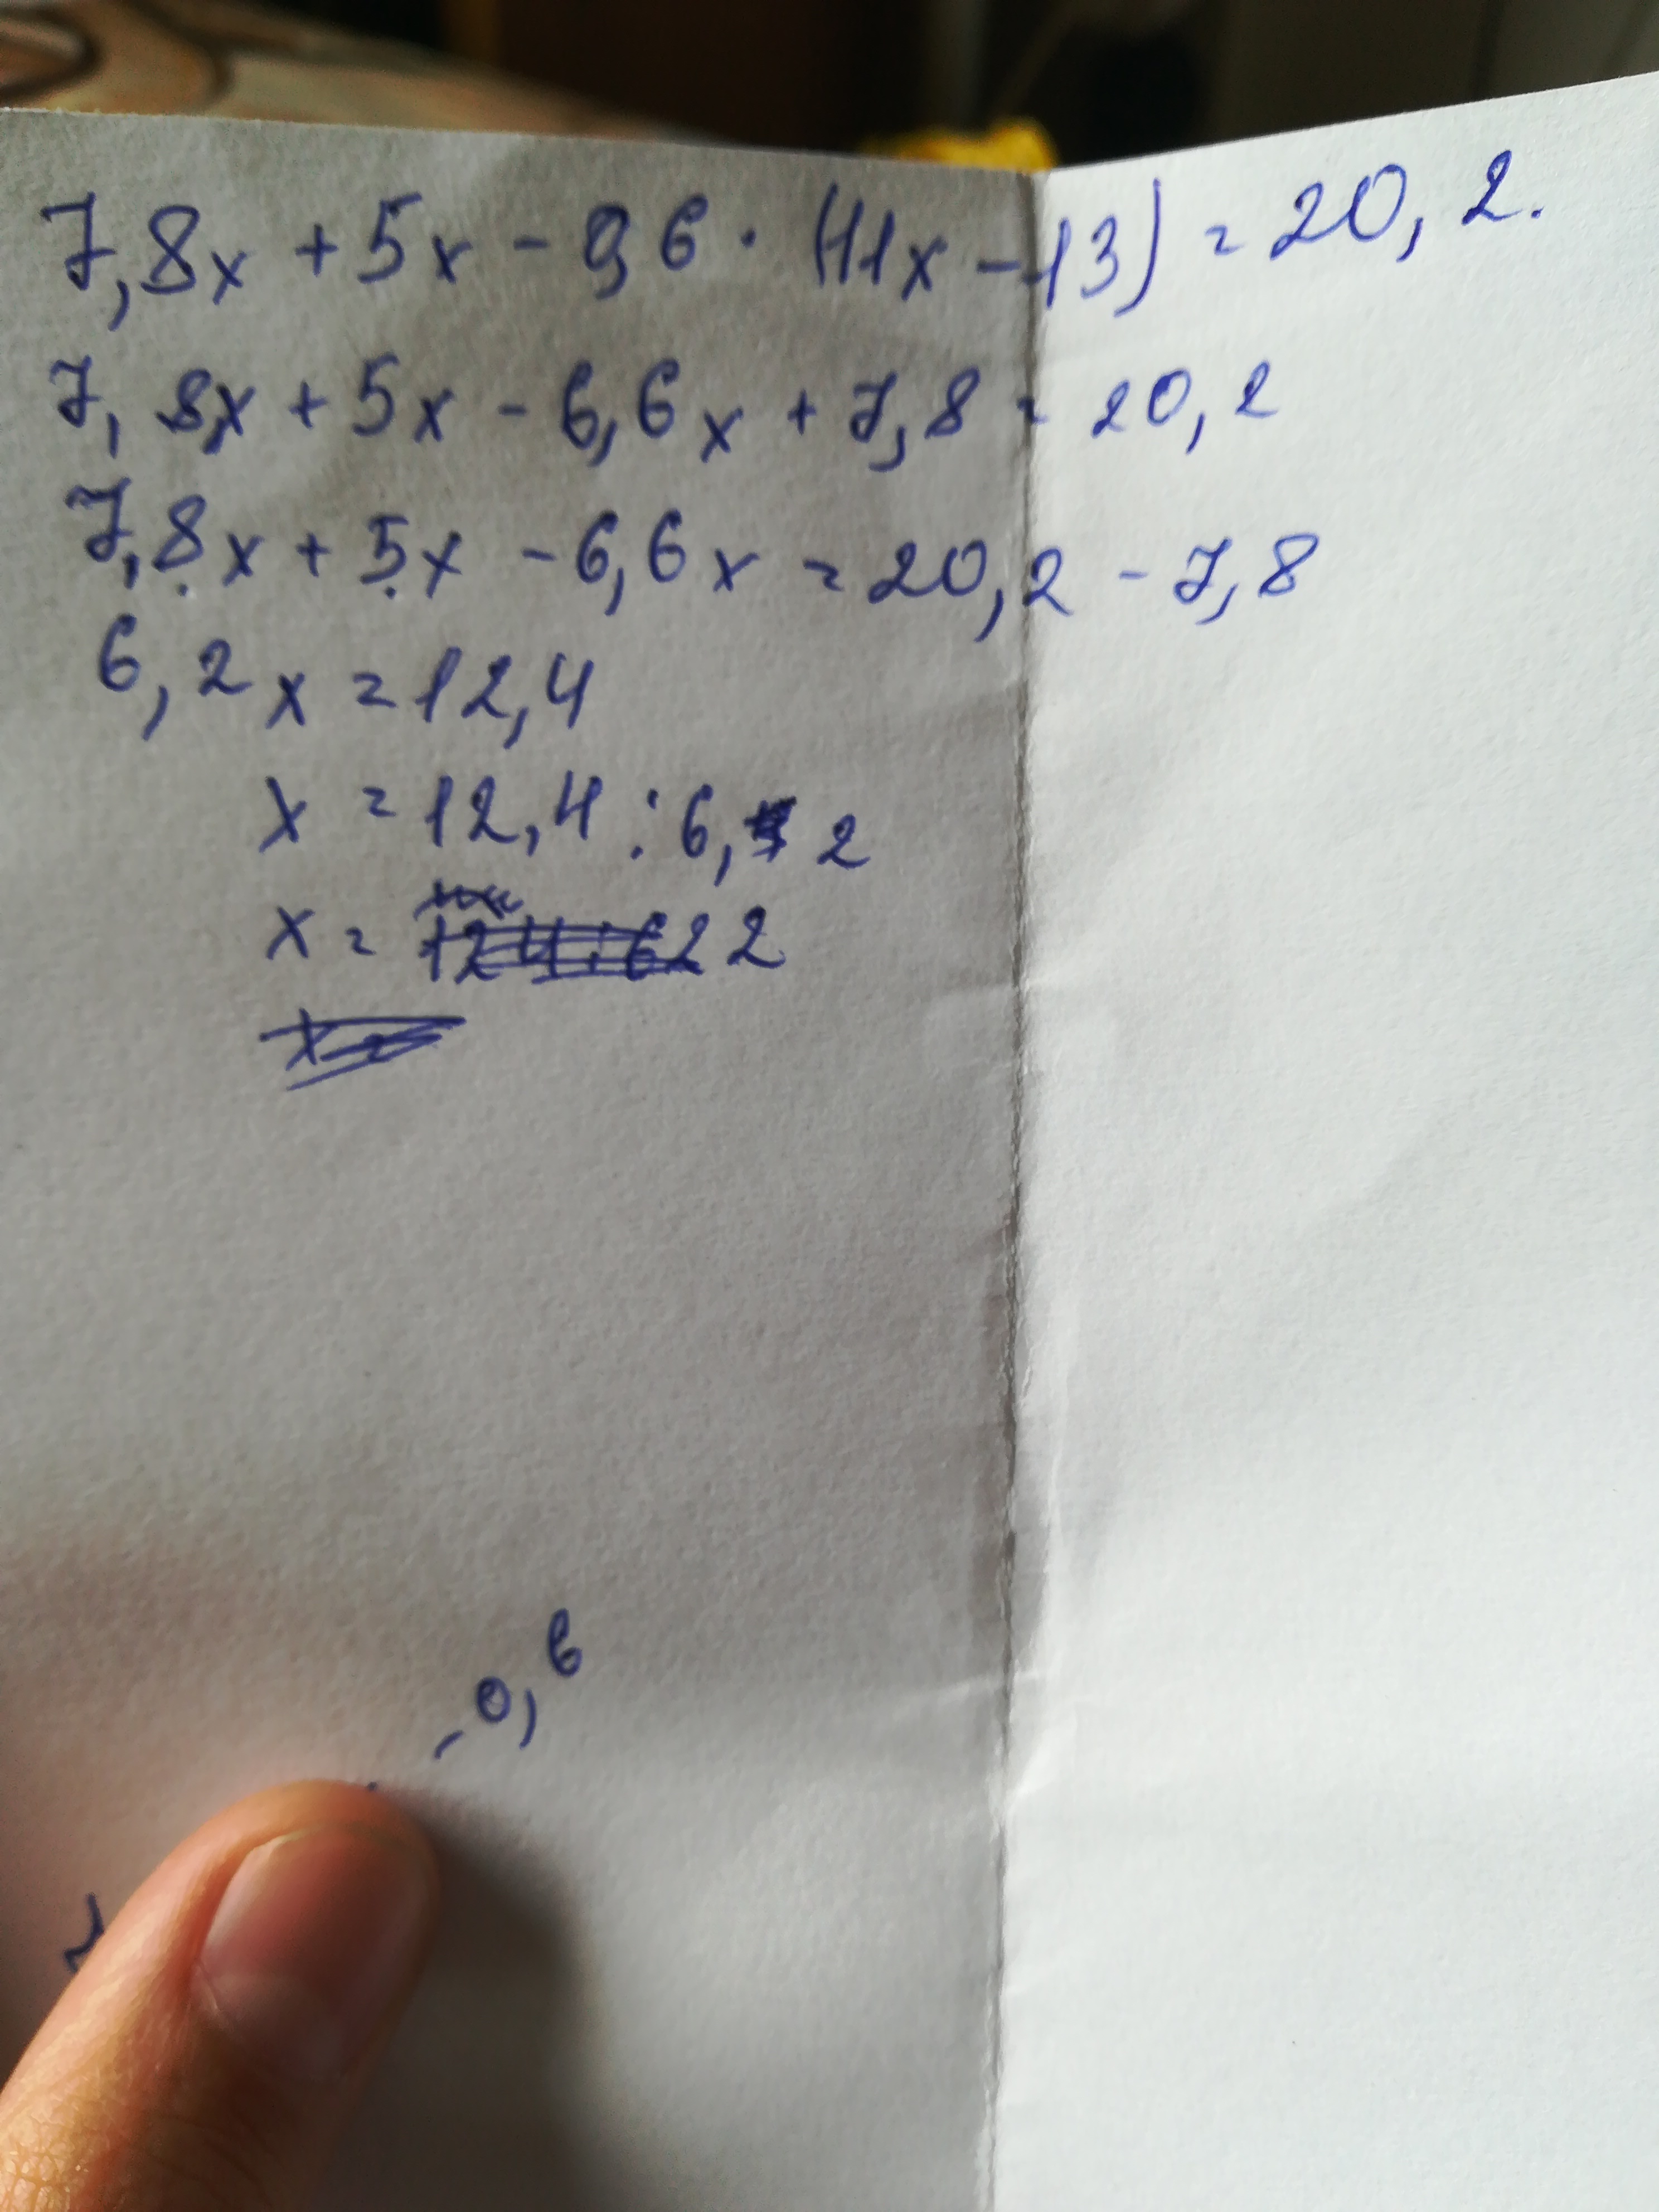 7,8x + 5x - 0,6 · (11x - 13) = 20,2.
7,8x + 5x - 6,6x + 7,8 = 20,2
7,8x + 5x - 6,6x = 20,2 - 7,8
6,2x = 12,4
x = 12,4 : 6,2
x = 2
-0,6